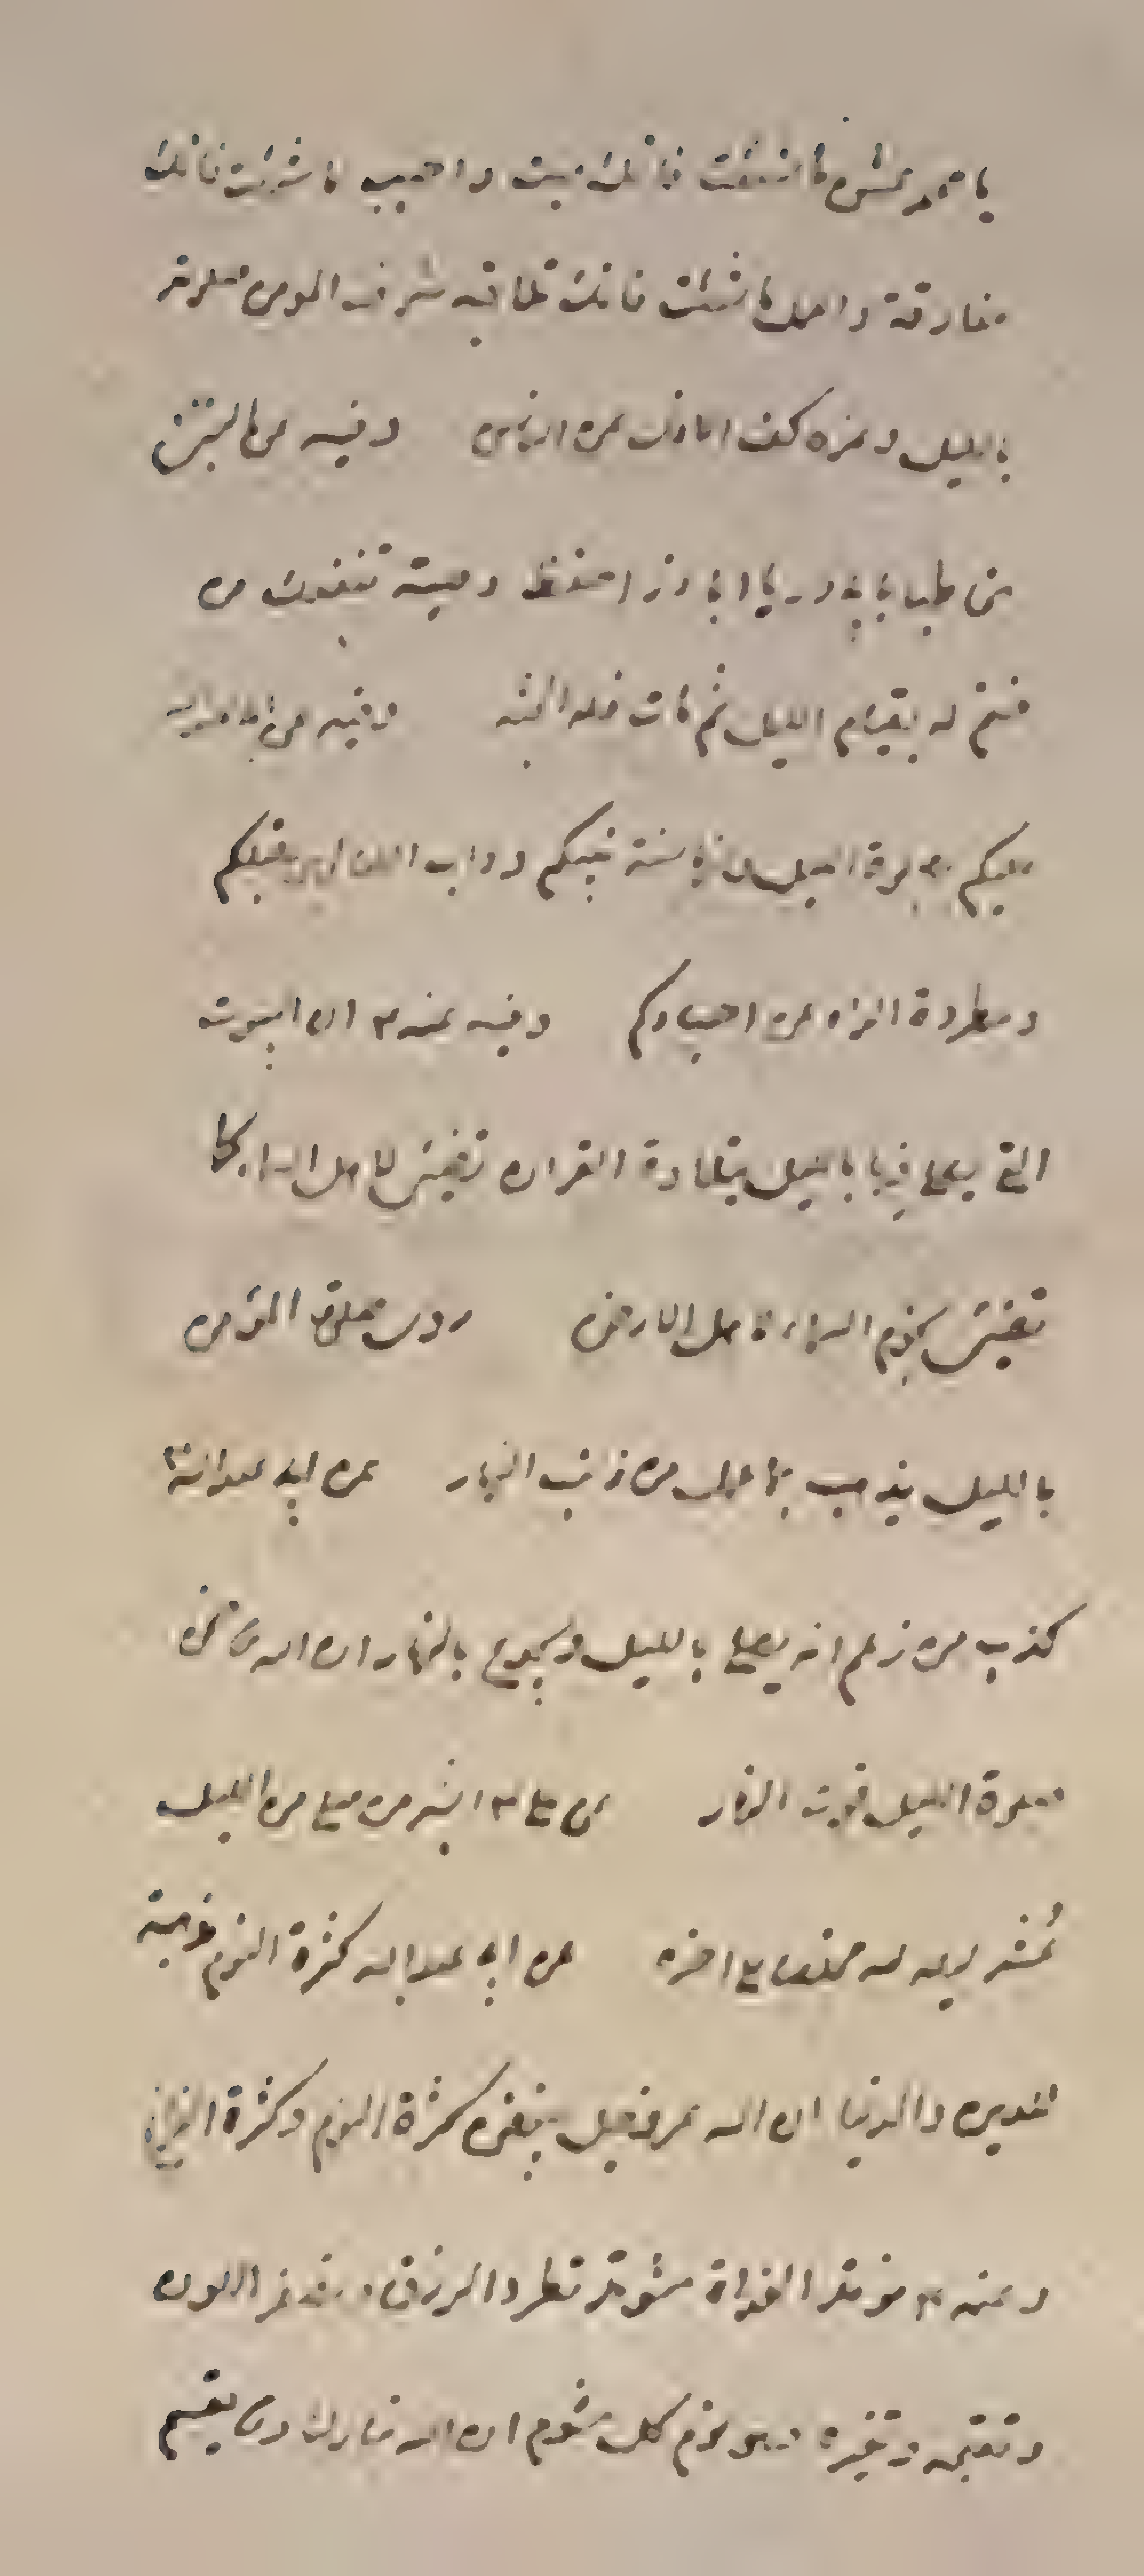 يا محمد عش ما شئت فانك ميت واحبب ما شئت فانك
مفارقه واعمل ما شئت فانك ملاقيه شرف المومن صلوته
بالليل وعزه كف الاذى عن الناس وفيه عن النبي
مخاطبا يا با ذر احفظ وصية تنفعك من
ختم له بقيام الليل ثم مات فله الجنة وفيه عن
عليكم بصلوة الليل فانها سنة نبيكم وداب الصالحين قبلكم
ومطردة الداء عن اجسادكم وفيه عنه ع ان البيوت
التي يصلى فيها بالليل بتلاوة القران تضيئ لاهل السماء كما
تضيئ نجوم السماء لاهل الارض صلوة المؤمن
بالليل يذهب بما عمل من ذنب النهار عن ابي عبد الله ع
كذب من زعم انه يصلي بالليل ويجوع بالنهار ان الله ضمن
صلوة الليل قوت النهار عن علي ع ابشر من صلى من الليل
عُشر ليله لله مخلصا عن ابي عبد الله كثرة النوم مذهبة
للدين والدنيا ان الله عز وجل يبغض كثرة النوم وكثرة الفراغ
وعنه ع نومة الغداة مشومة تطرد الرزق وتصفر اللون
وتقبحه وتغيره وهو نوم كل مشوم ان الله تبارك وتعالى يقسم